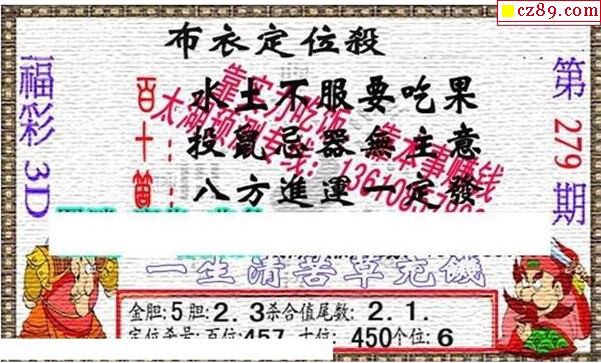 cz89.com
布衣定位殺
福彩 3D
第 279 期
百:水土不服要吃果
十:投鼠忌器無主意
個:八方進運一定發
靠实力吃饭 靠本事赚钱
太湖预测专线:
一生清苦草充饑
金胆:5 胆:2.3杀合值尾数: 2.1.
定位杀号: 百位:457 十位: 450个位:6